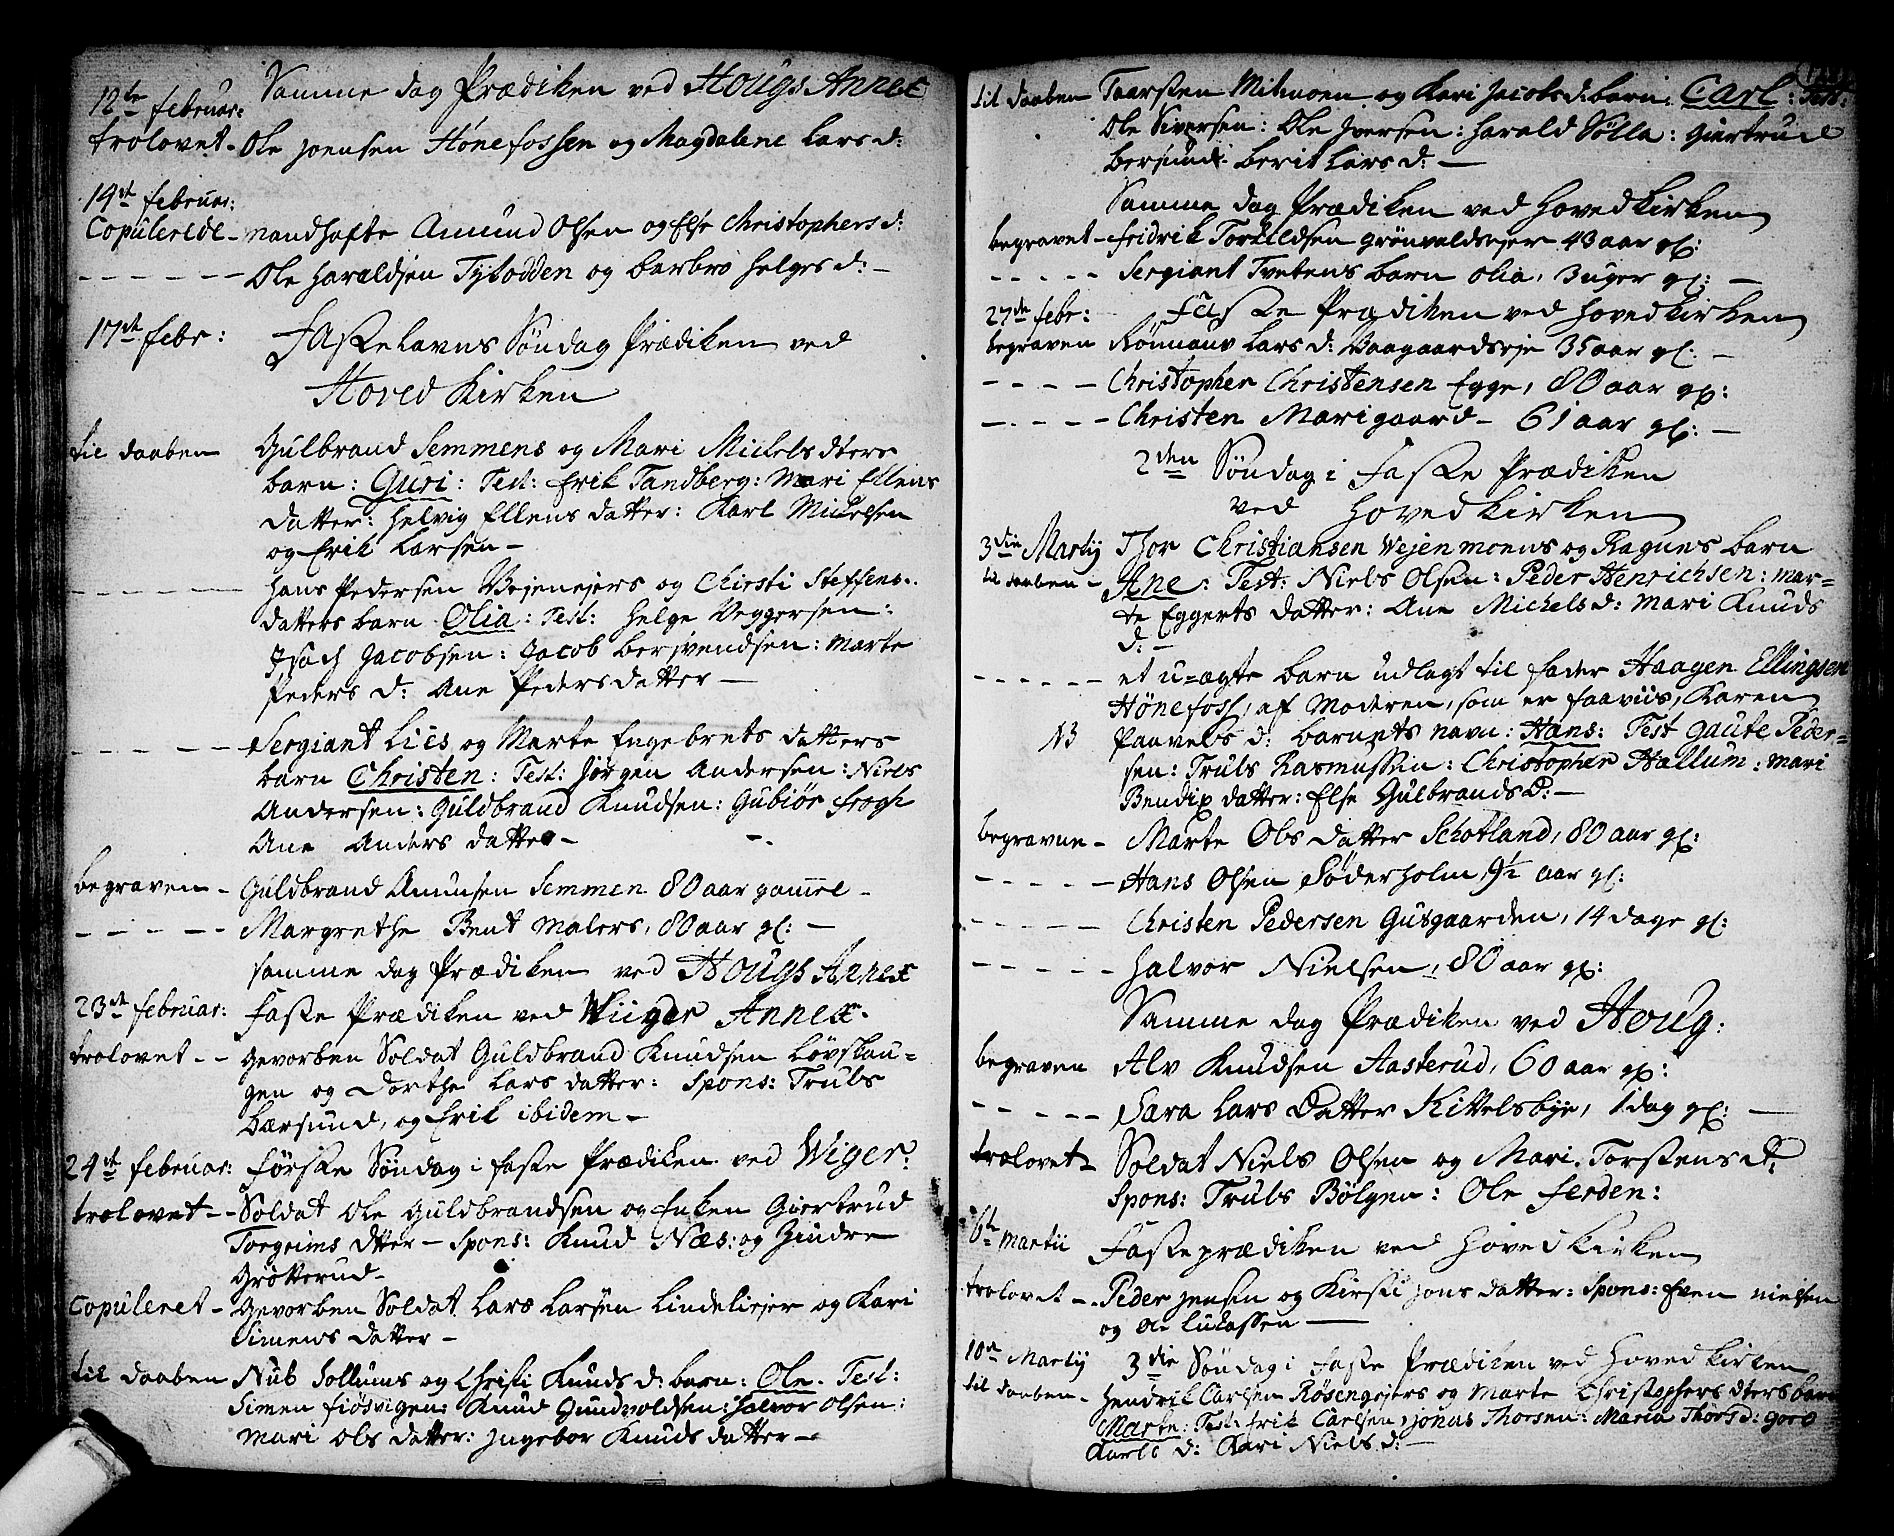 Samme dag Prædiken ved Hougs Annex
12te februar:
trolovet - Ole Joensen Hønefossen og Magdalene Lars d:
14de februar:
Copulerede - mandhafte Amund Olsen og Else Christophers d:
- - - - - Ole Haraldsen Tytodden og Barbro Helges d: -
17de febr: Fastelavns Søndag Prædiken ved
Hoved Kirken
til daaben Gulbrand Semmens og Mari Mickels dters
barn: Guri: Test: Erik Tandberg: Mari Ellens
datter: Helvig Ellens datter: Karl Mickelsen
og Erik Larsen -
- - - - - Hans Pedersen Vejenejers og Chirsti Steffens
datters barn Olia: Test: Helge Veggersen:
Isach Jacobsen: Jacob Berjvendsen: Marte
Peders d: Ane Pedersdatter -
- - - - - Sergiant Lies og Marte Engebrets datters
barn Christen: Test: Jørgen Andersen: Niels
Andersen: Guldbrand Knudsen: Gubiør Frogs
Ane Anders datter -
begraven - Guldbrand Amunsen Semmen 80 aar gamel -
- - - - - Margrethe Bent Malers, 80 aar gl: -
samme dag Prædiken ved Hougs Annex
23de februar: Faste Prædiken ved Wiiger Annex.
trolovet - - Gevorben Soldat Guldbrand Knudsen Løvshau=
gen og Dorthe Lars datter: Spons: Truls
Bærsund, og Erik ibidem -
24de februar: første Søndag i faste Prædiken ved Wiger:
trolovet - - Soldat Ole Guldbrandsen og Enken Giertrud
Torgeims dtter - Spons: Knud Næs: og Gindre
Grøtterud -
Copuleret - Gevorben Soldat Lars Larsen Lindeliejer og Kari
Simens datter -
til daaben Nub Sollums og Christi Knuds d: barn: Ole. Test:
Simen fiøsvigen: Knud Gundvoldsen: Halvor Olsen:
Mari Ols datter: Ingebor Knuds datter -
til daaben Taarsten Milmoen og Kari Jacobs d: barn: Carl: Test:
Ole Siversen: Ole Iversen: Harald Sølla: Giertrud
Bersund: Berit Lars d: -
Samme dag Prædiken ved Hovedkirken
begravet - Fridrik Torkildsen Grönvoldsejer 43 aar gl:
- - - - - Sergiant Tvetens barn Olia, 3 uger gl: -
27de febr: Faste Prædiken ved Hovedkirken
begraven Rönnauv Lars d: Vaagaardseje 35 aar gl: -
- - - - Christopher Christensen Egge, 80 aar gl:
- - - - Christen Marigaard - 61 aar gl: -
2den Söndag i Faste Prædiken
ved Hovedkirken
3die Martij Thor Christiansen Vejenmoens og Raguns barn
til daaben - Ane: Test: Niels Olsen: Peder Henrichsen: Mar=
te Eggerts datter: Ane Michels d: Mari Knuds
d: -
- - - - - et u=ægte barn udlagt til fader Haagen Ellingsen
Hönefoss, af Moderen, som er faaviis, Karen
NB Paavels d: barnets navn: Hans: Test Gaute Peder=
sen: Truls Rasmussen: Christopher Hallum: Mari
Bendix datter: Else Gulbrands D: -
begravne - Marte Ols datter Schotland, 80 aar gl:
- - - - - Hans Olsen Söderholm 9½ aar gl:
- - - - - Christen Pedersen Gusgaarden, 14 dage gl:
- - - - - Halvor Nielsen, 80 aar gl:
Samme dag Prædiken ved Houg:
begraven Alv Knudsen Aasterud, 60 aar gl:
- - - - - Sara Lars Datter Kittelsbye, 1 dag gl: -
trolovet - Soldat Niels Olsen og Mari Torstens d:
Spons: Truls Bölgen: Ole Ferden:
6te Martii Fasteprædiken ved Hovedkirken
trolovet - Peder Jensen og Kirsti Jons datter: Spons: Even Nielsen
og Ole Lukassen -
10de Martij 3die Søndag i Faste Prædiken ved Hovedkirken
til daaben - Hendrik Carlsen Røsengsejers og Marte Christophers dters barn
Marte: Test: Erik Carlsen, Jonas Thorsen: Maria Thors d: Goro
Karls d: Kari Niels d: -